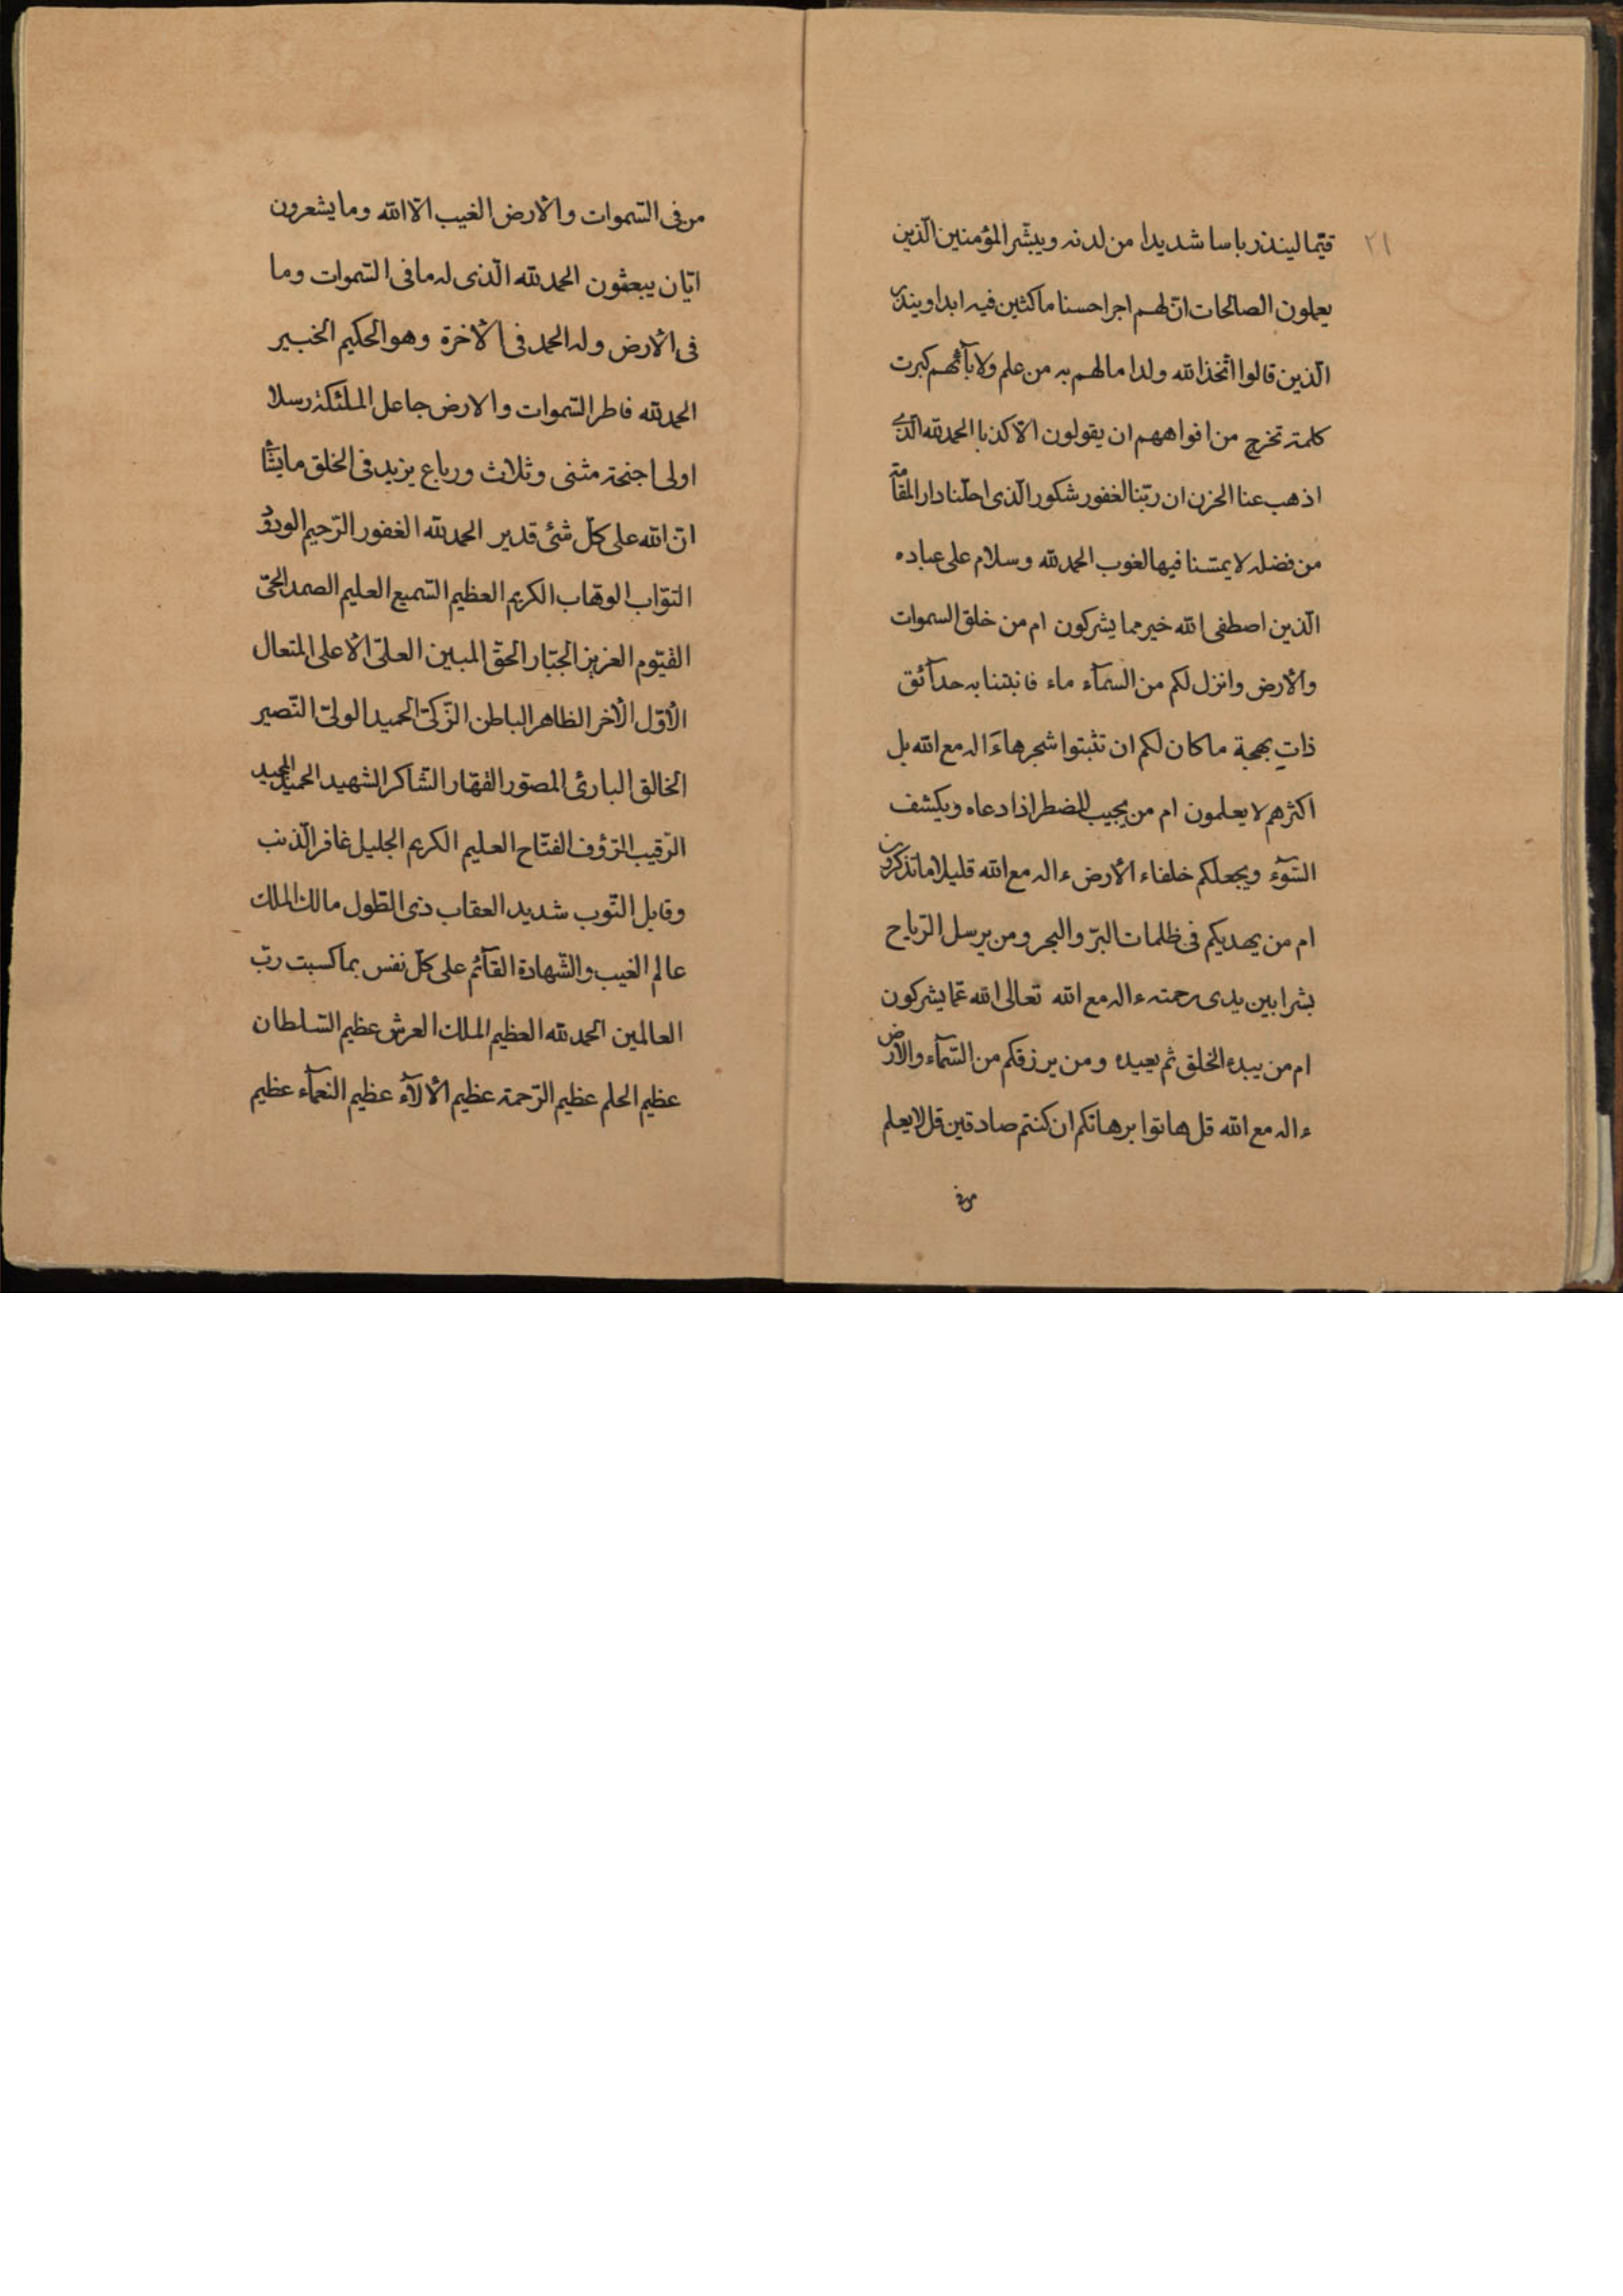 ٢١
قيّما لينذر باسا شديدا من لدنه ويبشّر المؤمنين الّذين
يعملون الصالحات انّ لهم اجرا حسنا ماكثين فيه ابدا وينذر
الّذين قالوا اتّخذ الله ولدا مالهم به من علم ولا بآئهم كبرت
كلمة تخرج من افواههم ان يقولون الّا كذبا الحمد لله الّذى
اذهب عنا الحزن ان ربّنا لغفور شكور الّذى احلّنا دار المقامة
من فضله لا يمسّنا فيها لغوب الحمد لله وسلام على عباده
الّذين اصطفى الله خير مما يشركون ام من خلق السموات
والأرض وانزل لكم من السّمآء ماء فانبتنا به حدآئق
ذات بهجة ما كان لكم ان تنبتوا شجرها ءَاله مع الله بل
اكثرهم لا يعلمون ام من يجيب المضطر اذا دعاه ويكشف
السّوٓء ويجعلكم خلفاء الأرض ءاله مع الله قليلا ما تذكرون
ام من يهديكم فى ظلمات البرّ والبحر ومن يرسل الرّياح
بشرا بين يدى رحمته ءاله مع الله تعالى الله عمّا يشركون
ام من يبدء الخلق ثم يعيده ومن يرزقكم من السّمآء والأرض
ءاله مع الله قل هاتوا برهانكم ان كنتم صادقين قل لا يعلم
من فى
من فى السّموات والأرض الغيب الّا الله وما يشعرون
ايّان يبعثون الحمد لله الّذى له ما فى السّموات وما
فى الأرض وله الحمد فى الأخرة وهو الحكيم الخبير
الحمد لله فاطر السّموات والارض جاعل الملئكة رسلا
اولى اجنحة مثنى وثلاث ورباع يزيد فى الخلق ما يشآ
انّ الله على كلّ شئ قدير الحمد لله الغفور الرّحيم الودود
التوّاب الوهّاب الكريم العظيم السّميع العليم الصمد الحىّ
القيّوم العزيز الجبّار الحقّ المبين العلىّ الأعلى المتعال
الأوّل الأخر الظاهر الباطن الزّكىّ الحميد الولىّ النّصير
الخالق البارئ المصوّر القهّار الشّاكر الشهيد الحميد المجيد
الرّقيب الرّؤف الفتّاح العليم الكريم الجليل غافر الذّنب
وقابل التّوب شديد العقاب ذى الطّول مالك الملك
عالم الغيب والشّهادة القآئم على كلّ نفس بما كسبت ربّ
العالمين الحمد لله العظيم الملك العرش عظيم السّلطان
عظيم الحلم عظيم الرّحمة عظيم الألآء عظيم النعمآء عظيم